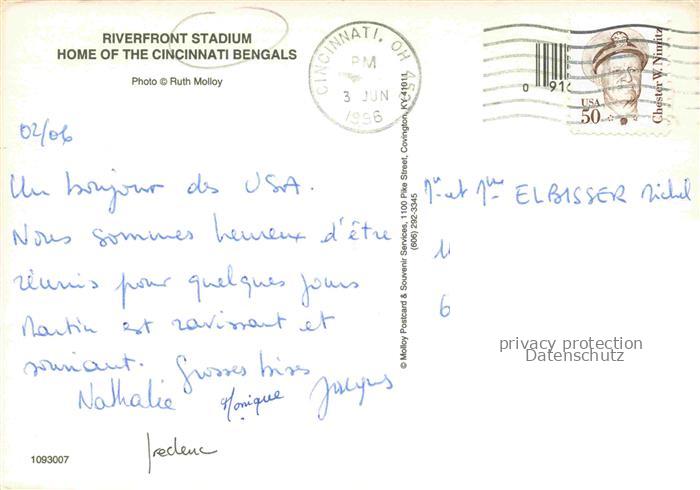 RIVERFRONT STADIUM
HOME OF THE CINCINNATI BENGALS
Photo © Ruth Molloy
CINCINNATI, OH
PM
3 JUN
1996
USA
50
Chester W. Nimitz
02/06
Un bonjour des USA.
Nous sommes heureux d'être
réunis pour quelques jours
Martin est ravissant et
souriant. Grosses bises
Nathalie Monique Jacques
1093007
© Molloy Postcard & Souvenir Services, 1100 Pike Street, Covington, KY 41011
(606) 292-3345
Mr et Mme ELBISSER Michel
privacy protection
Datenschutz